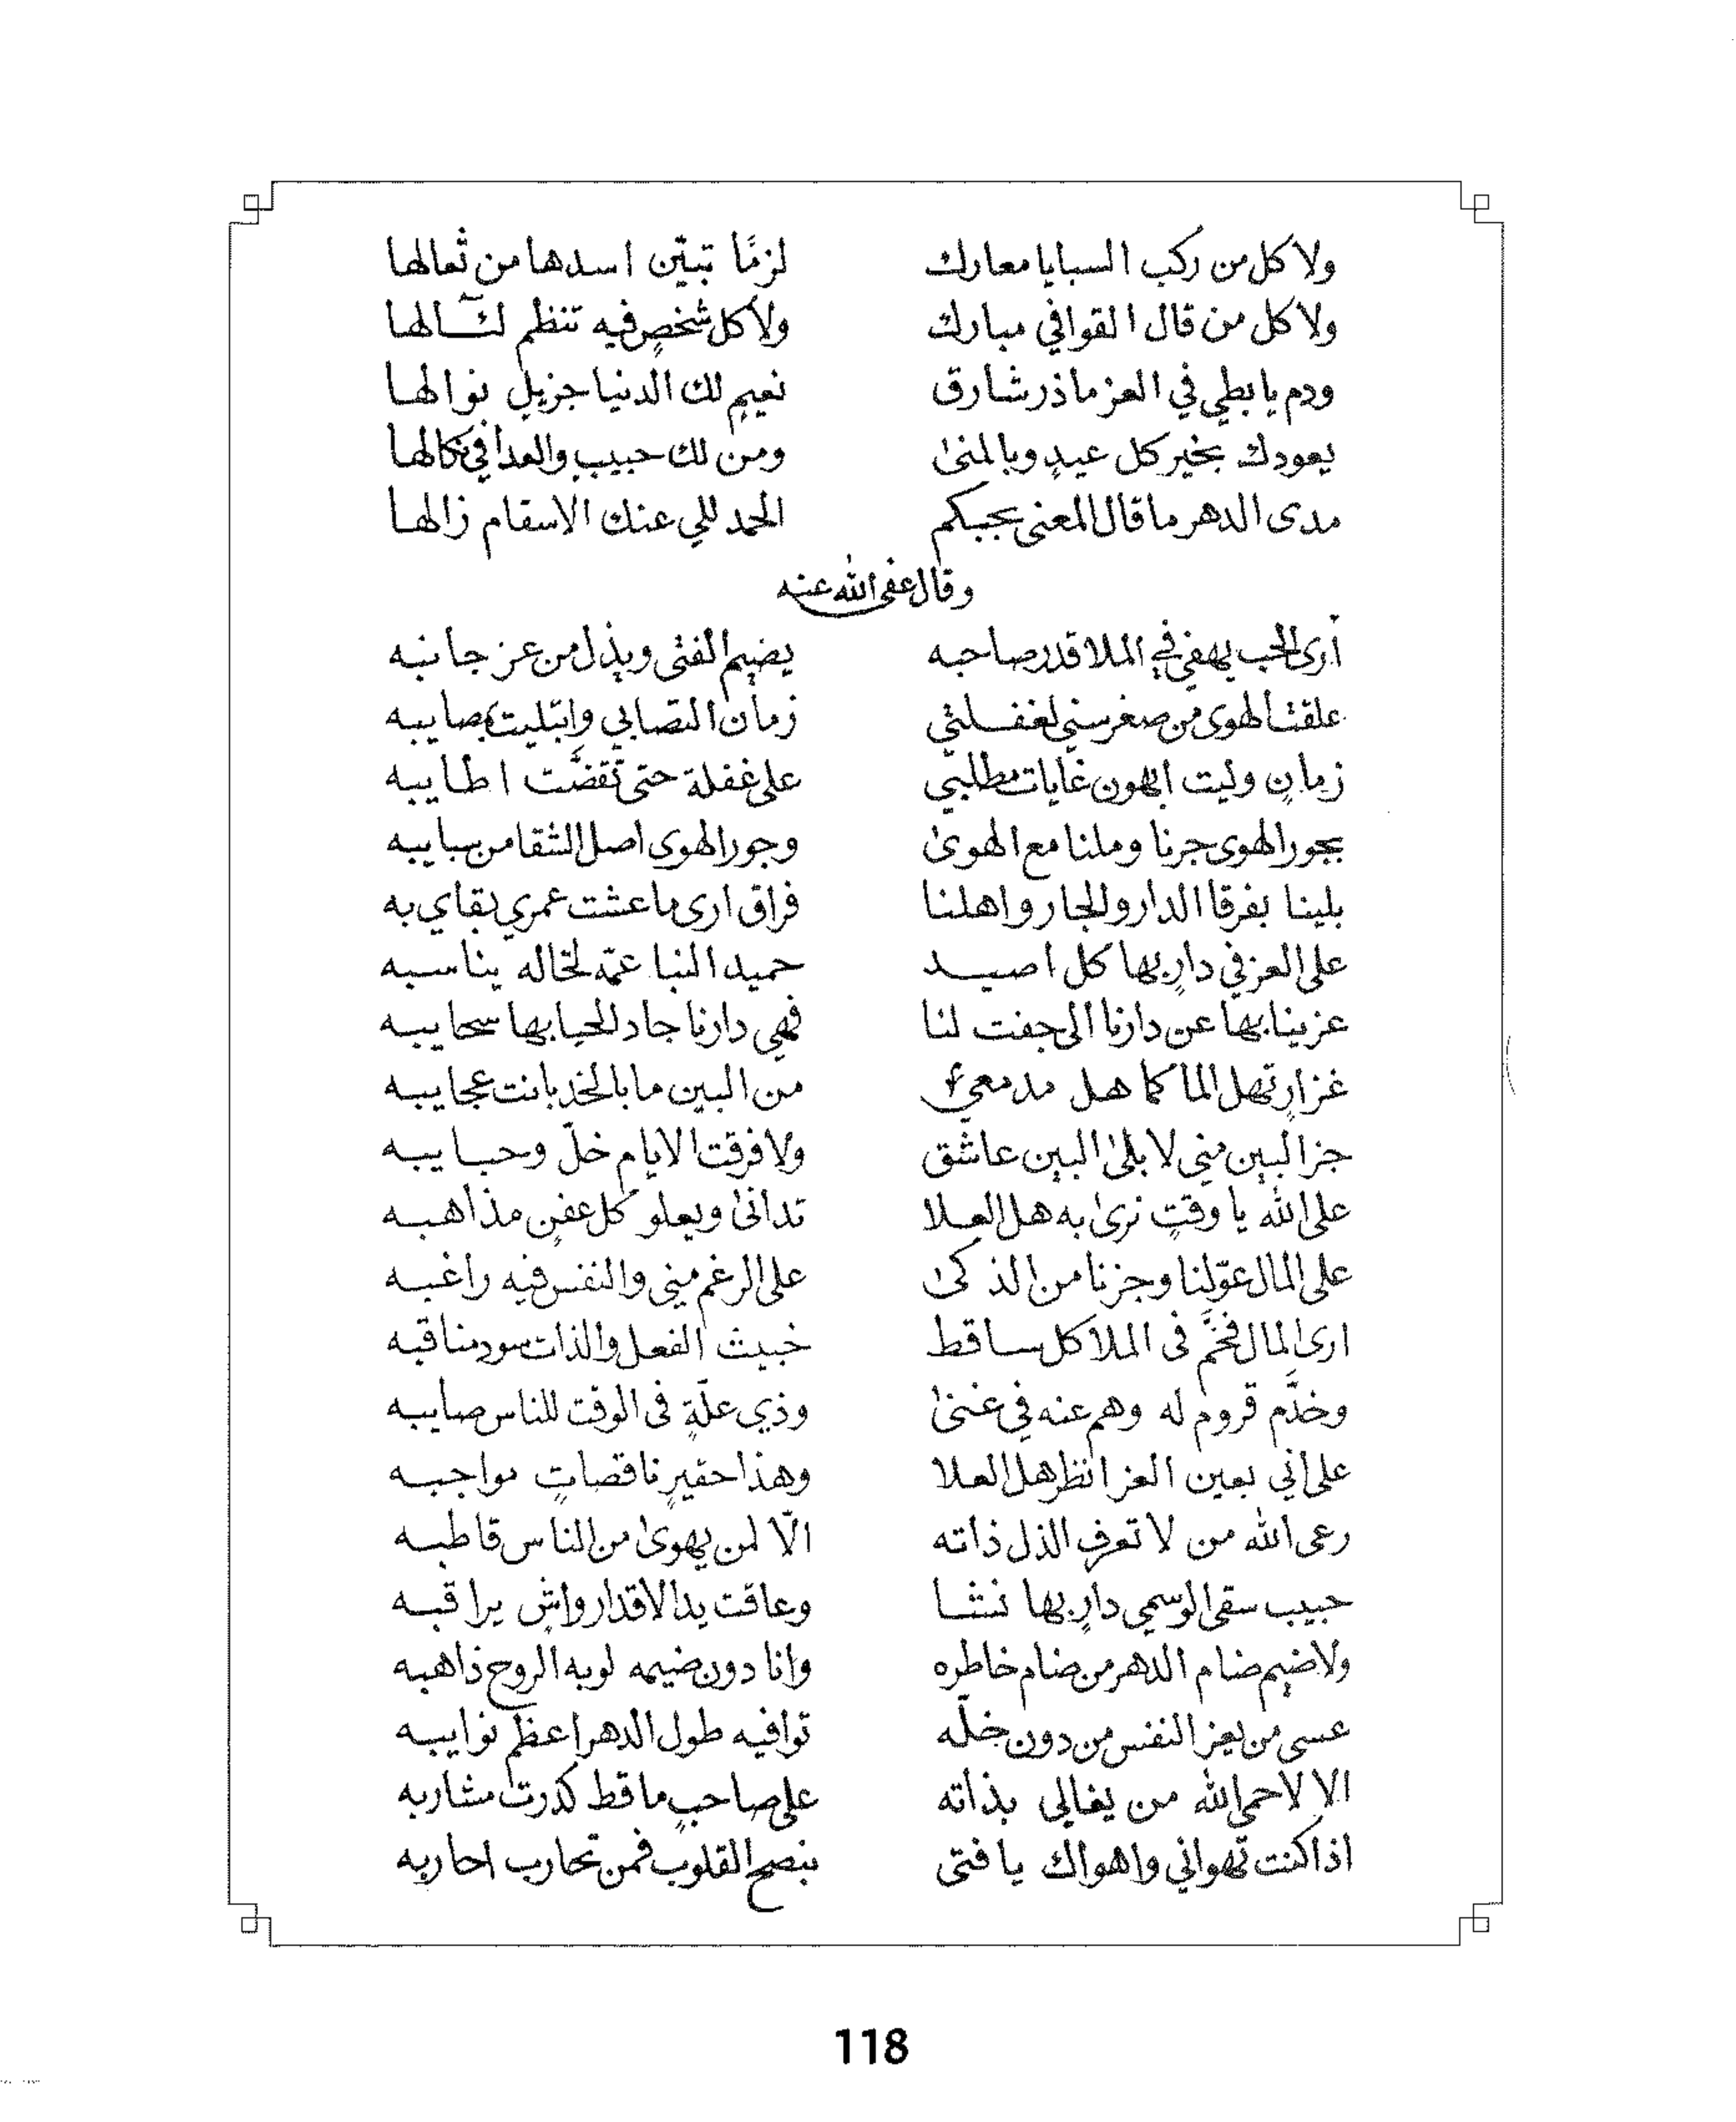 ولا كل من ركب السبايا معارك لزمًا تبيّن اسدها من ثعالها
ولا كل من قال القوافي مبارك ولا كل شخصٍ فيه تنظم لئالها
ودم يا بطي في العز ما ذر شارق نعيمٍ لك الدنيا جزيلٍ نوالها
يعودك بخير كل عيدٍ وبالمنىٰ ومن لك حبيبٍ والعدا في نكالها
مدى الدهر ما قال المعنى بحبكم الحمد للي عنك الاسقام زالها
وقال عفى الله عنه
أرى الحب يهفي في الملا قدر صاحبه يضيم الفتى ويذل من عز جانبه
علقت الهوى من صغر سني لغفلتي زمان التصابي وابتليت بمصايبه
زمانٍ وليت الهون غايات مطلبي على غفلة حتى تقضَّت اطايبه
بجور الهوى جرنا وملنا مع الهوىٰ وجور الهوى اصل الشقا من سبايبه
بلينا بفرقا الدار والجار واهلنا فراق ارى ما عشت عمري بقاي به
على العز في دارٍ بها كل اصيد حميد النبا عمّه لخاله يناسبه
عزينا بها عن دارنا الى جفت لنا فهي دارنا جاد الحيا بها سحايبه
غزارٍ تهل الما كما هل مدمعي من البين ما بالخد بانت عجايبه
جزا البين مني لا بلىٰ البين عاشق ولا فرقت الايام خلّ وحبايبه
على الله يا وقتٍ نرىٰ به هل العلا تدانىٰ ويعلو كل عفنٍ مذاهبه
على المال عوّلنا وجزنا من الذكىٰ على الرغم مني والنفس فيه راغبه
ارى المال فخَّم في الملا كل ساقط خبيث الفعل والذات سود مناقبه
وخدَّم قروم له وهم عنه في غنىٰ وذي علّةٍ في الوقت للناس صايبه
على اني بعين العز انظر هل العلا وهذا حقيرٍ ناقصاتٍ مواجبه
رعى الله من لا تعرف الذل ذاته الّا لمن يهوىٰ من الناس قاطبه
حبيب سقى الوسمي دارٍ بها نشا وعاقت يد الاقدار واشٍ يراقبه
ولا ضيم ضام الدهر من ضام خاطره وانا دون ضيمه لو به الروح ذاهبه
عسى من يعز النفس من دون خلّه توافيه طول الدهر اعظم نوايبه
الا لا حمى الله من يغالي بذاته على صاحبٍ ما قط كدرت مشاربه
اذا كنت تهواني واهواك يا فتى بنصح القلوب فمن تحارب احاربه
118